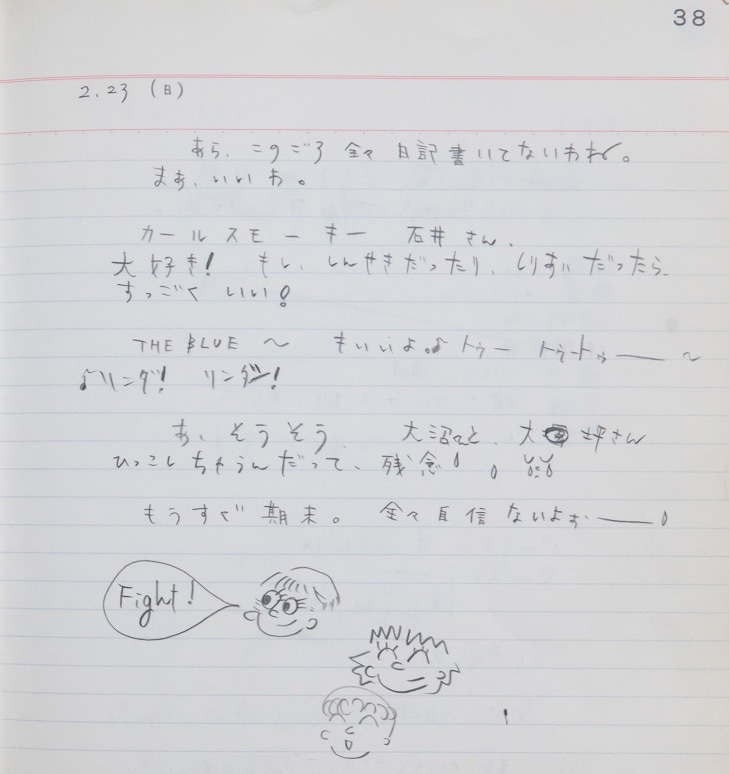 38
2.23 (日)
あら、このごろ 全々 日記書いてないわね。
まぁ、いいわ。
カールスモーキー 石井さん、
大好き! もし、しんせきだったり、しりあいだったら、
すっごく いい!
THE BLUE 〜 もいいよ。♪ トゥー トゥートゥ──── 〜
♪リンダ! リンダ!
あ、そうそう 大沼くんと、大坪さん
ひっこしちゃうんだって、残念!
もうすぐ 期末。 全々自信 ないよぉ───!
Fight!